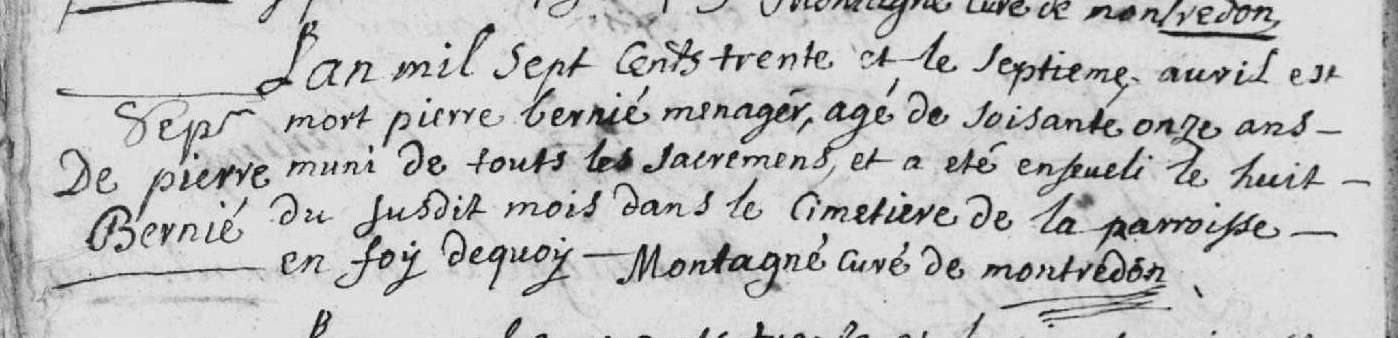 Montagné curé de montredon
Lan mil Sept Cents trente et le Septieme auril est
mort pierre bernié menager, agé de soisante onze ans
muni de touts les sacremens, et a eté enseueli le huit
du susdit mois dans le Cimetiere de la parroisse
en foy dequoy Montagné Curé de montredon
Sepr
De pierre
Bernié